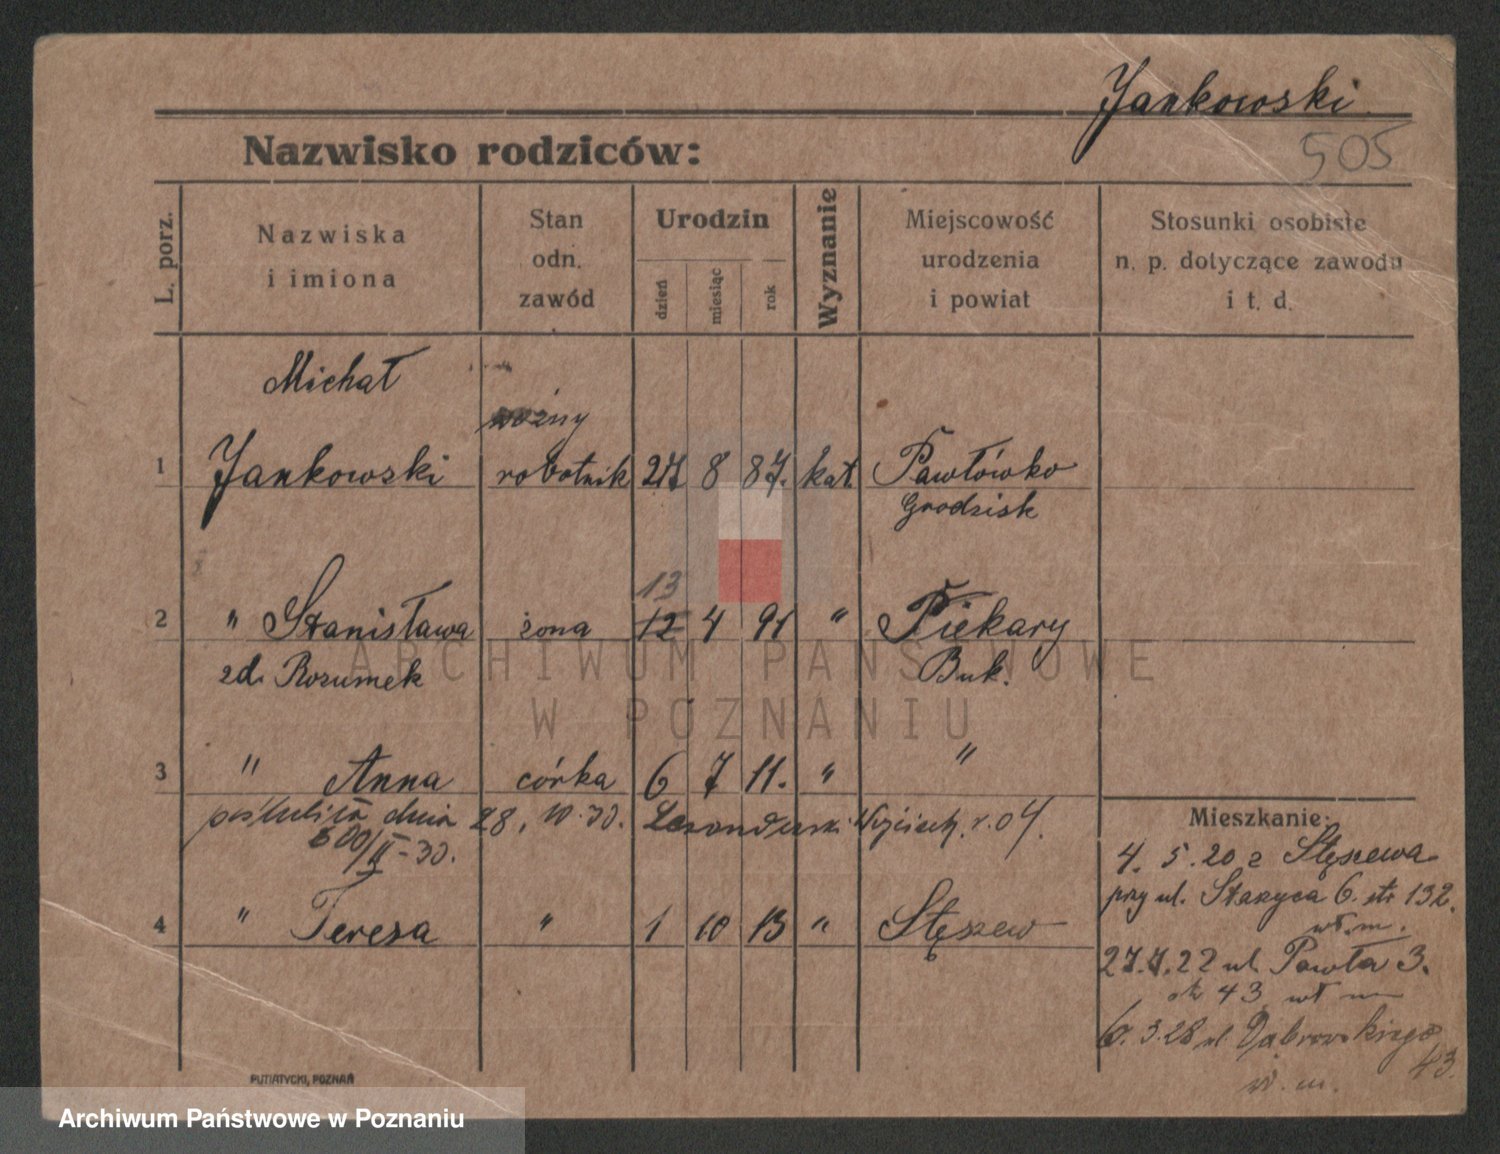 Jankowski
505
Nazwisko rodziców:
L. porz.
Nazwiska
i imiona
Stan
odn.
zawód
Urodzin
dzień
miesiąc
rok
Wyznanie
Miejscowość
urodzenia
i powiat
Stosunki osobiste
n. p. dotyczące zawodu
i t. d.
Michał
woźny
1 Jankowski robotnik 27 8 87. kat. Pawłówko
Grodzisk
13
2 " Stanisława żona 12 4 91 " Piekary
zd. Rozumek Buk.
3 " Anna córka 6 7 11. " "
poślubiła dnia 28, 10.30. Wojciech. r. 04.
600/II-30.
4 " Teresa " 1 10 13 " Stęszew
Mieszkanie:
4. 5. 20 z Stęszewa
przy ul. 6. str 132.
wł. m.
27.7.22 ul. Pawła 3.
43 wł m
6. 3.28 ul. Dąbrowskiego
43.
w. m.
PUTIATYCKI, POZNAŃ
ARCHIWUM PAŃSTWOWE
W POZNANIU
Archiwum Państwowe w Poznaniu